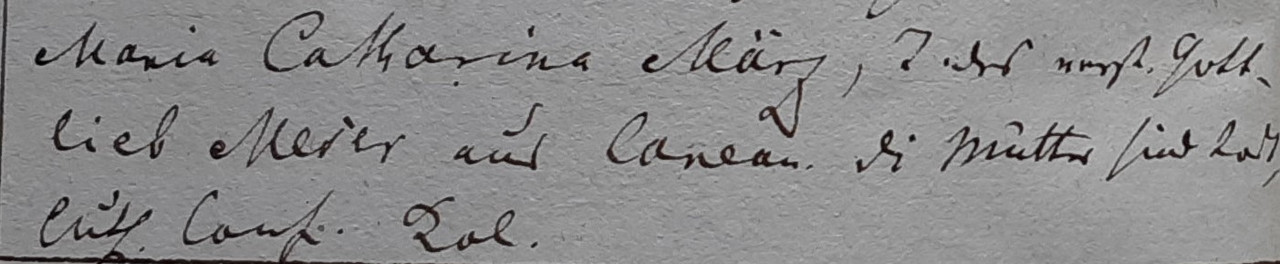 Maria Catharina März, T. des verst. Gott-
lieb Meier aus Caneau. di Mutter sind todt,
luth. Conf. Kol.